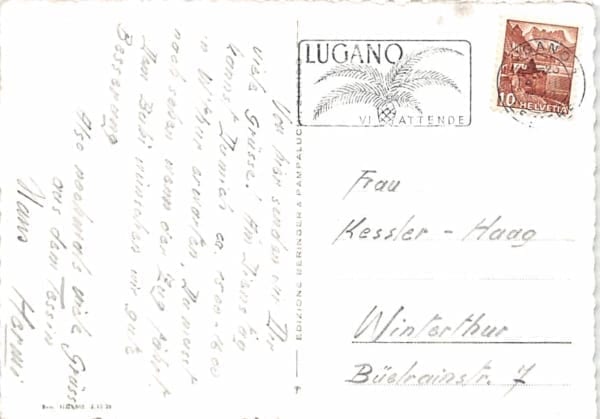 Von hier senden wir Dir
viele Grüsse! Am Dienstag
kannst Du mich ca. 1500-1600
in W'thur erwarten. Du musst
noch sehen wann der Zug fährt.
Dem Bubi wünschen wir gute
Besserung.
Also nochmals viele Grüsse
aus dem Tessin
Hans
EDIZIONE BERINGER & PAMPALUCHI
LUGANO
VI ATTENDE
LUGANO
10 HELVETIA
Frau
Kessler - Haag
Winterthur
Büelrainstr. 7